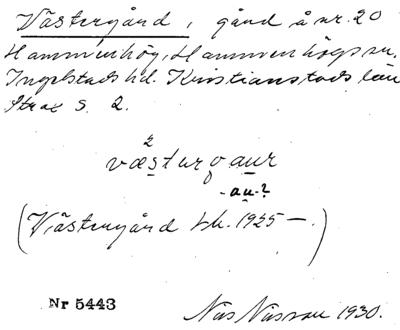 Västergård, gård å nr. 20
Hammenhög, Hammenhögs sn.
Ingelstads hd. Kristianstads län
Strax S. 2.
2
væsturgaur
-au-?
(Västergård tk. 1925—.)
Nr 5443
Nils Nilsson 1930.